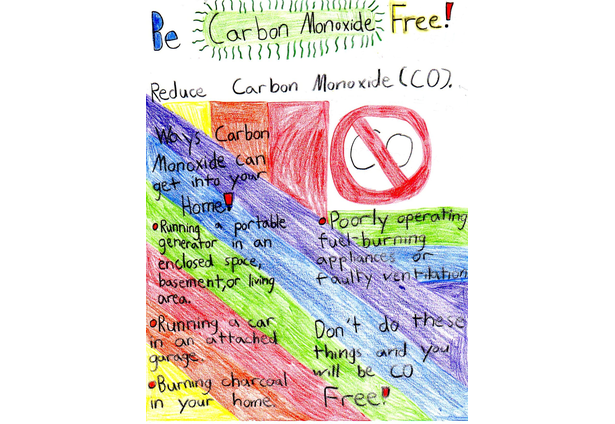 Be Carbon Monoxide Free!
Reduce Carbon Monoxide (CO).
Ways Carbon
Monoxide can
get into your
Home!
CO
•Running a portable
generator in an
enclosed space,
basement, or living
area.
•Running a car
in an attached
garage.
•Burning charcoal
in your home.
•Poorly operating
fuel-burning
appliances or
faulty ventilation
Don't do these
things and you
will be CO
Free!